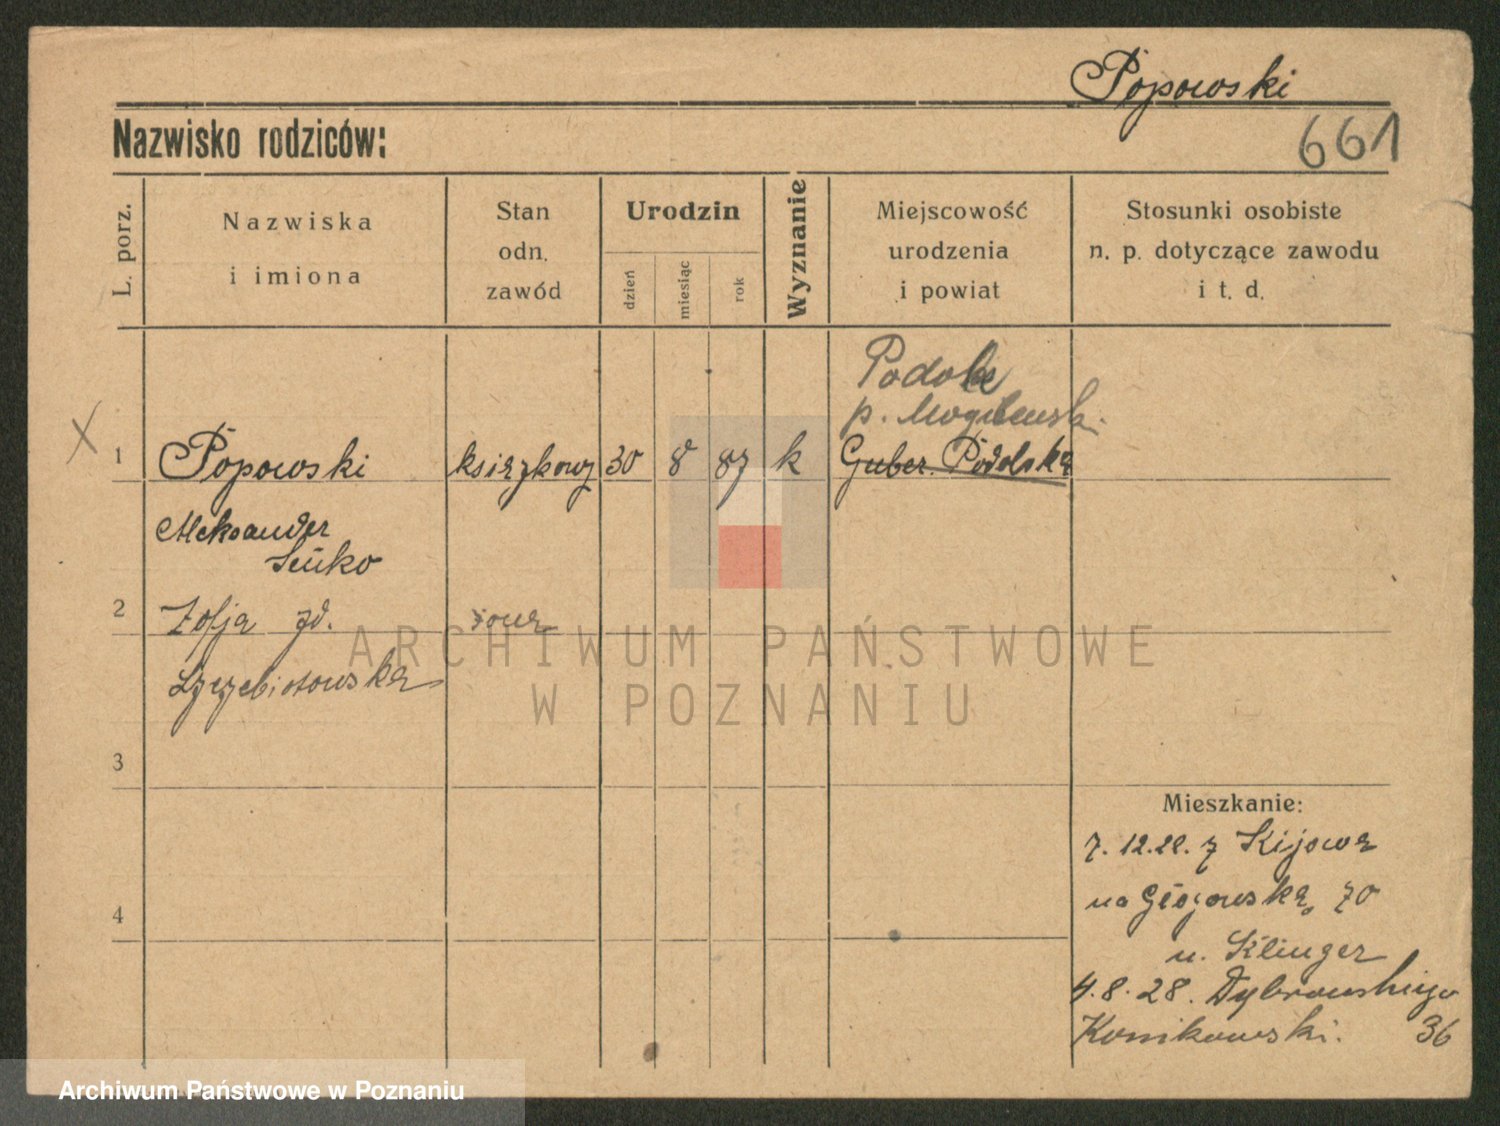 Popowski
Nazwisko rodziców:
661
L. porz.
Nazwiska
i imiona
Stan
odn.
zawód
Urodzin
dzień
miesiąc
rok
Wyznanie
Miejscowość
urodzenia
i powiat
Stosunki osobiste
n. p. dotyczące zawodu
i t. d.
Podole
p. Mogilewski
X
1 Popowski książkowy 30 8 87 k Guber. Podolska
Aleksander
2 Zofja zd. żona
3
4
Mieszkanie:
7. 12. 22. z Kijowa
na Głogowską 70
u. Klinger
4. 8. 28. Dąbrowskiego
Konikowski. 36
ARCHIWUM PAŃSTWOWE
W POZNANIU
Archiwum Państwowe w Poznaniu